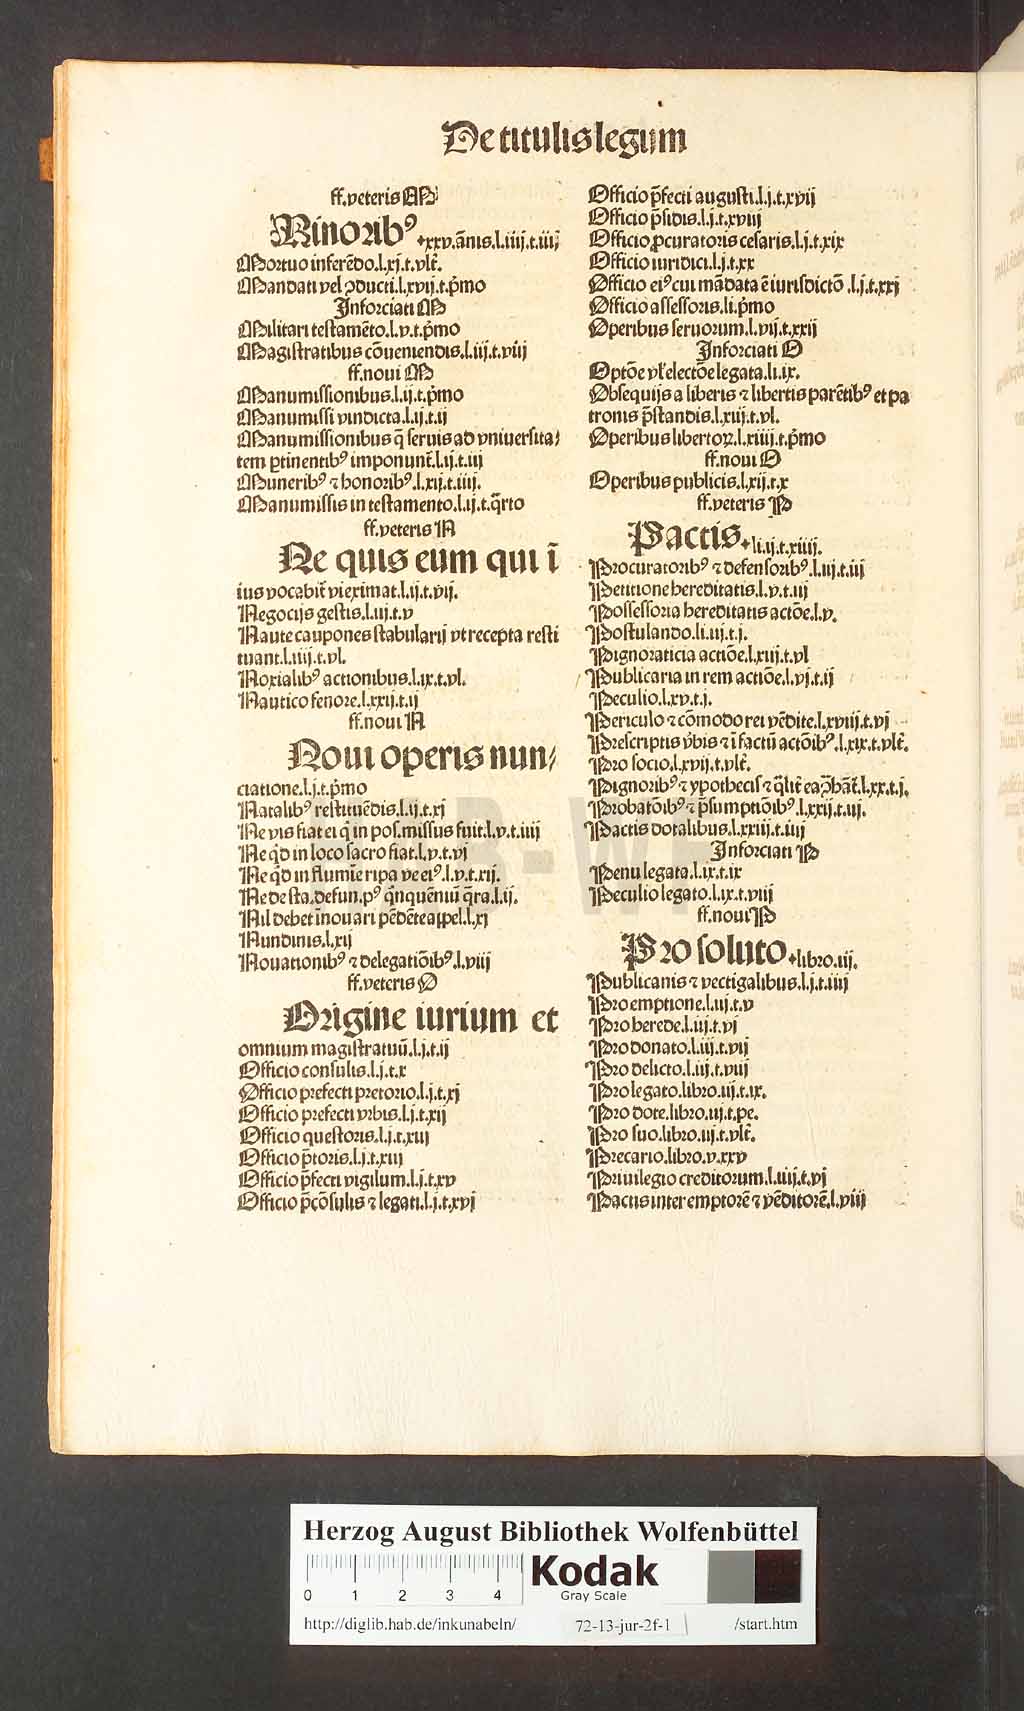 De titulis legum
ff.veteris M
Minoribꝰ.xxv.ānis.l.iiij.t.iiij
Mortuo inferēdo.l.xj.t.vlt̄.
Mandati vel ꝯducti.l.xvij.t.p̄mo
Inforciati M
Militari testamēto.l.v.t.p̄mo
Magistratibus cōueniendis.l.iij.t.viij
ff.noui M
Manumissionibus.l.ij.t.p̄mo
Manumissi vindicta.l.ij.t.ij
Manumissionibus q̄ seruis ad vniuersita⸗
tem ꝑtinentibꝰ imponunt̄.l.ij.t.iij
Muneribꝰ ⁊ honoribꝰ.l.xij.t.iiij.
Manumissis in testamento.l.ij.t.q̄rto
ff.veteris N
Ne quis eum qui ī
ius vocabit̄ vi eximat.l.ij.t.vij.
Negocijs gestis.l.iij.t.v
Naute caupones stabularij vt recepta resti
tuant.l.iiij.t.vl.
Noxialibꝰ actionibus.l.ix.t.vl.
Nautico fenore.l.xxij.t.ij
ff.noui N
Noui operis nun⸗
ciatione.l.j.t.p̄mo
Natalibꝰ restituēdis.l.ij.t.xj
Ne vis fiat ei q̄ in pos.missus fuit.l.v.t.iiij
Ne q̄d in loco sacro fiat.l.v.t.vj
Ne q̄d in flumīe ripa ve eiꝰ.l.v.t.xij.
Ne de sta.defun.pꝰ q̄nquēniū q̄ra.l.ij.
Nil debet īnouari pēdēte appel.l.xj
Nundinis.l.xij
Nouationibꝰ ⁊ delegatiōibꝰ.l.viij
ff.veteris O
Origine iurium et
omnium magistratuū.l.j.t.ij
Officio consulis.l.j.t.x
Officio prefecti pretorio.l.j.t.xj
Officio prefecti vrbis.l.j.t.xij
Officio questoris.l.j.t.xiij
Officio p̄toris.l.j.t.xiij
Officio p̄fecti vigilum.l.j.t.xv
Officio p̄cōsulis ⁊ legati.l.j.t.xvj
Officio p̄fecti augusti.l.j.t.xvij
Officio p̄sidis.l.j.t.xviij
Officio ꝓcuratoris cesaris.l.j.t.xix
Officio iuridici.l.j.t.xx
Officio eiꝰ cui mādata ē iurisdictō.l.j.t.xxj
Officio assessoris.li.p̄mo
Operibus seruorum.l.vij.t.xxij
Inforciati O
Optōe vl̄ electōe legata.li.ix.
Obsequijs a liberis ⁊ libertis parētibꝰ et pa
tronis p̄standis.l.xiij.t.vl.
Operibus libertoꝝ.l.xiiij.t.p̄mo
ff.noui O
Operibus publicis.l.xij.t.x
ff.veteris P
Pactis.li.ij.t.xiiij.
Procuratoribꝰ ⁊ defensoribꝰ.l.iij.t.iij
Petitione hereditatis.l.v.t.iij
Possessoria hereditatis actōe.l.v.
Postulando.li.iij.t.j.
Pignoraticia actiōe.l.xiij.t.vl
Publicaria in rem actiōe.l.vj.t.ij
Peculio.l.xv.t.j.
Periculo ⁊ cōmodo rei vēdite.l.xviij.t.vj
Prescriptis v̄bis ⁊ ī factū actōibꝰ.l.xix.t.vlt̄.
Pro socio.l.xvij.t.vlt̄.
Pignoribꝰ ⁊ ypothecis ⁊ q̄lit̄ ea ꝯ̄hāt̄.l.xx.t.j.
Probatōibꝰ ⁊ p̄sumptiōibꝰ.l.xxij.t.iij.
Pactis dotalibus.l.xxiij.t.iiij
Inforciati P
Penu legata.l.ix.t.ix
Peculio legato.l.ix.t.viij
ff.noui P
Pro soluto.libro.iij.
Publicanis ⁊ vectigalibus.l.j.t.iiij
Pro emptione.l.iij.t.v
Pro herede.l.iij.t.vj
Pro donato.l.iij.t.vij
Pro delicto.l.iij.t.viij
Pro legato.libro.iij.t.ix.
Pro dote.libro.iij.t.pe.
Pro suo.libro.iij.t.vlt̄.
Precario.libro.v.xxv
Priuilegio creditorum.l.iiij.t.vj
Pactis inter emptorē ⁊ vēditorē.l.viij
HAB-WF
Herzog August Bibliothek Wolfenbüttel
0 1 2 3 4
Kodak
Gray Scale
http://diglib.hab.de/inkunabeln/ 72-13-jur-2f-1 /start.htm